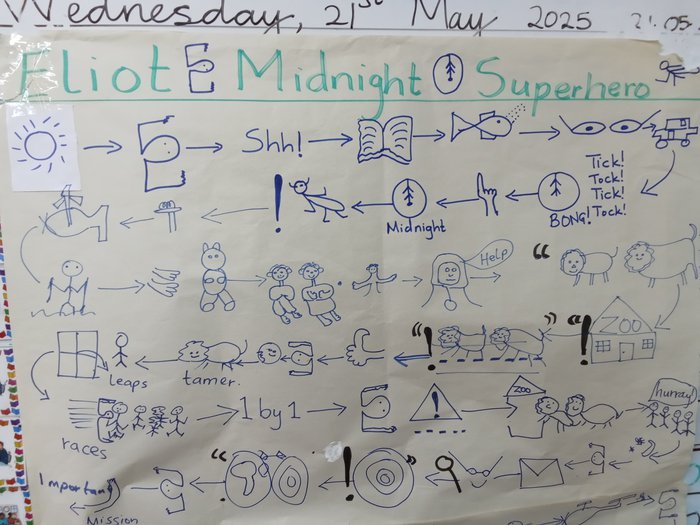 Wednesday, 21st May 2025 21.05.
Eliot Midnight Superhero
Shh!
Tick!
Tock!
Tick!
Tock!
BONG!
!
Midnight
Help
"
ZOO
"!
"
"!
leaps
tamer.
races
1 by 1
!
ZOO
hurray!
"
!
"
Important
Mission